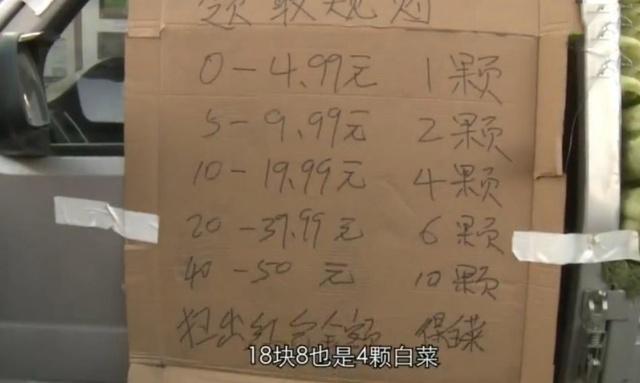 领取规则
0-4.99元 1颗
5-9.99元 2颗
10-19.99元 4颗
20-39.99元 6颗
40-50元 10颗
红包金额 白菜
18块8也是4颗白菜